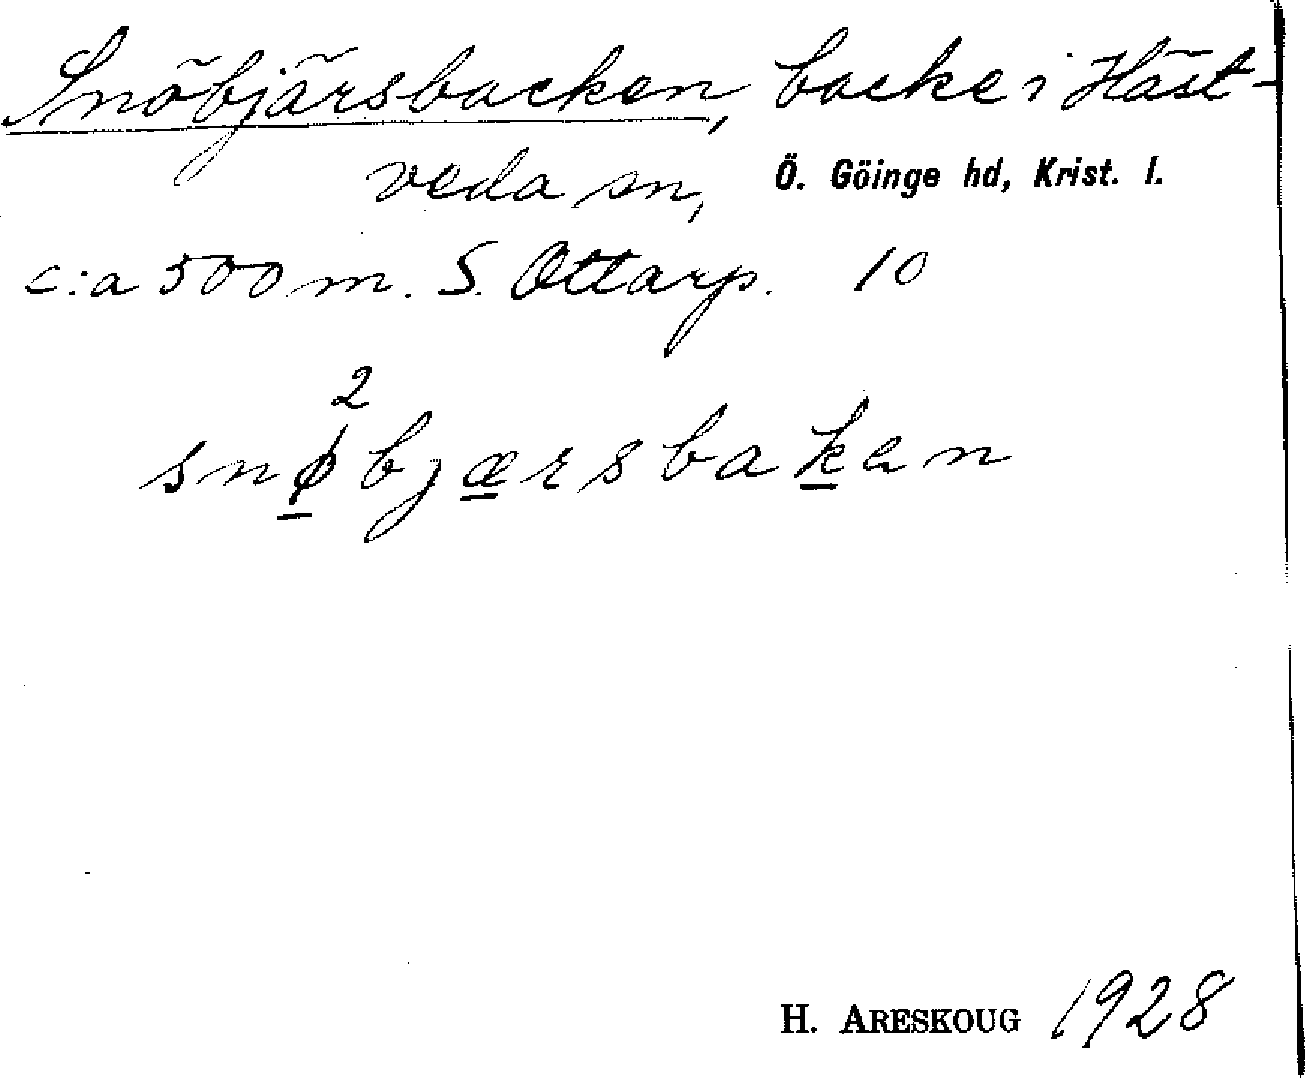 Snöbjärsbacken, backe i Häst-
veda sn, Ö. Göinge hd, Krist. l.
c:a 500 m. S. Ottarp. 10
2
snøbjærsbaken
H. ARESKOUG 1928